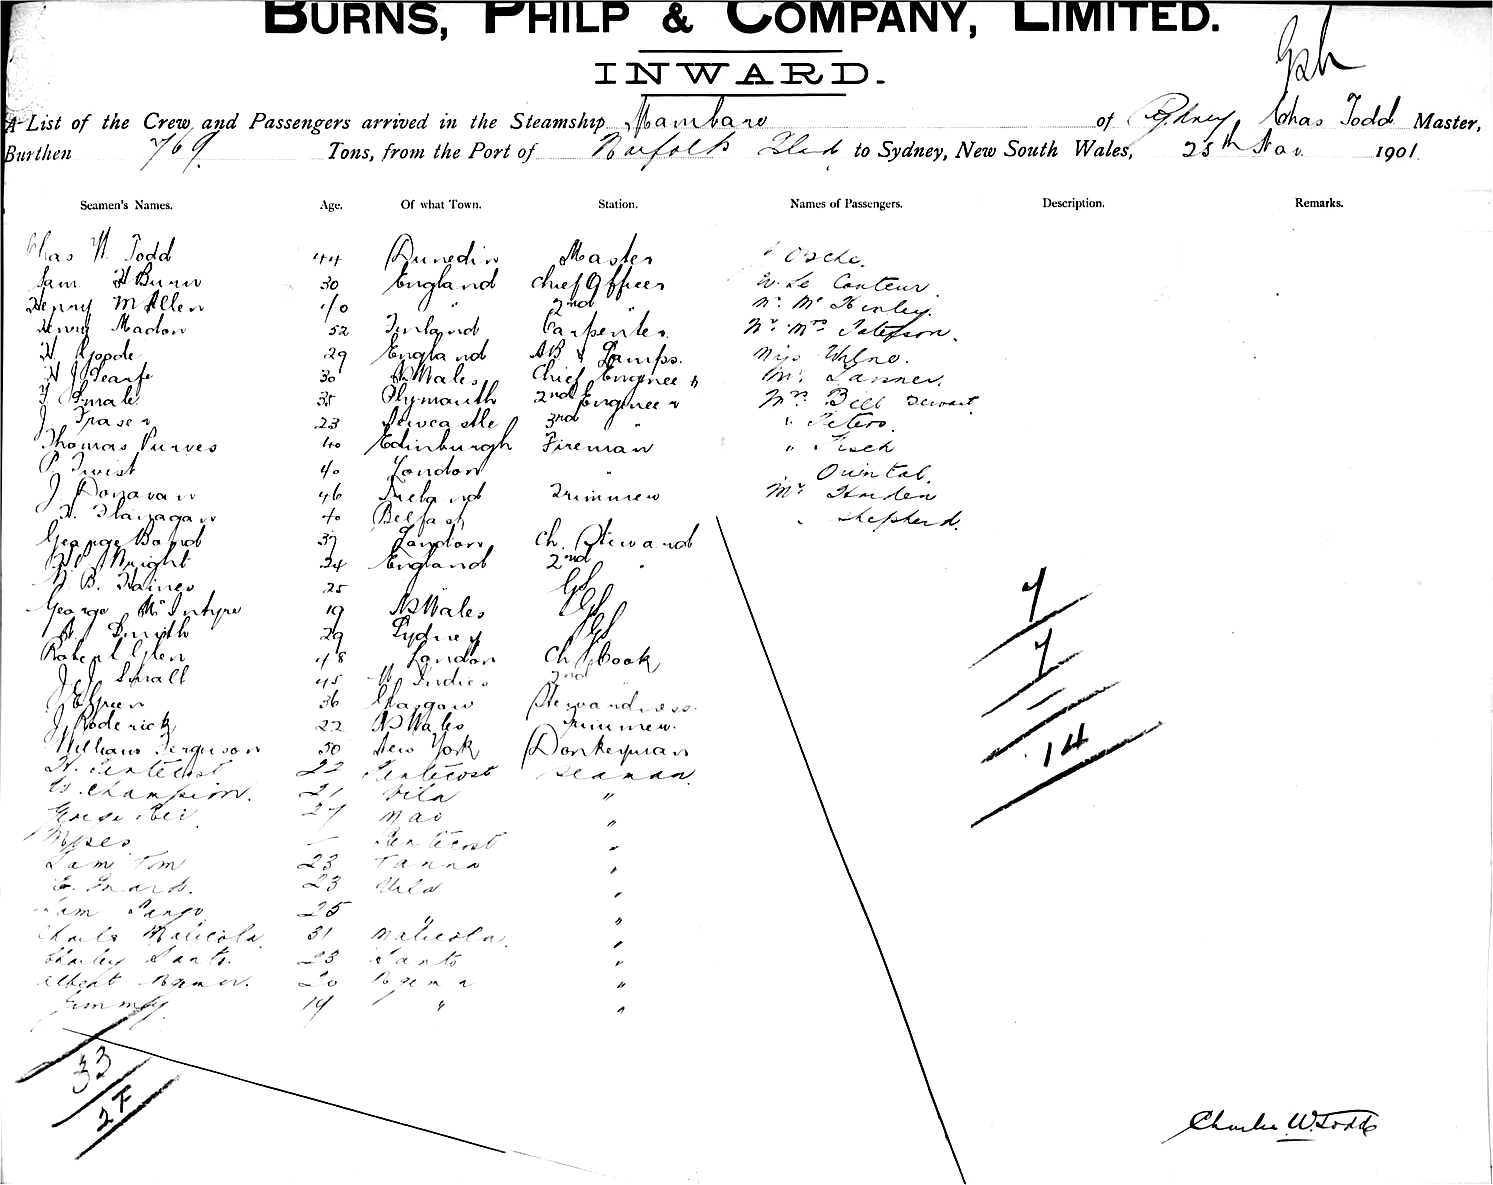 BURNS, PHILP & COMPANY, LIMITED.
INWARD.
A List of the Crew and Passengers arrived in the Steamship Mambare of Sydney, Chas Todd Master,
Burthen 769 Tons, from the Port of Norfolk Isld to Sydney, New South Wales, 25th Nov. 1901
Seamen's Names. Age. Of what Town. Station. Names of Passengers. Description. Remarks.
Chas W. Todd 44 Dunedin Master
Sam 30 England Chief Officer W. Le Couteur.
Henry M Allen 40 " 2nd " Mr. McKinley.
Henry 52 Carpenter Mr. Mrs Paterson.
H. Goode 29 England AB & Lamps. Miss
30 NSWales Chief Engineer Mr.
Smale 35 Plymouth 2nd Engineer Mrs Bell Stewart.
J. Fraser 23 Newcastle 3rd " " Peters.
Thomas Purves 40 Edinburgh Fireman "
P. Twist 40 London " " Quintal.
J Donavan 46 Ireland Trimmer Mr
Flanagan 40 Belfast " Shepherd.
George Bond 37 London Ch. Steward
Wright 24 England 2nd "
B. Haines 25 "
George McIntyre 19 NSWales
Smith 29 Sydney
Robert Glen 48 London Ch Cook
J. J. Small 45 W Indies 2nd "
Green 36 Glasgow Stewardess.
J. Roderick 22 NSWales Trimmer.
William Ferguson 30 New York Donkeyman
H. Pentecost 22 Pentecost Seaman.
W. Champion. 21 Vila "
27 "
Moses — Pentecost "
Sam Tom 23 Tanna "
23 Vila "
Sam 25 " "
Charlie Malicola 31 Malicola. "
Charley Santo. 23 Santo "
Albert 20 "
Jimmy. 19 " "
7
7
14
33
27
Charles W. Todd